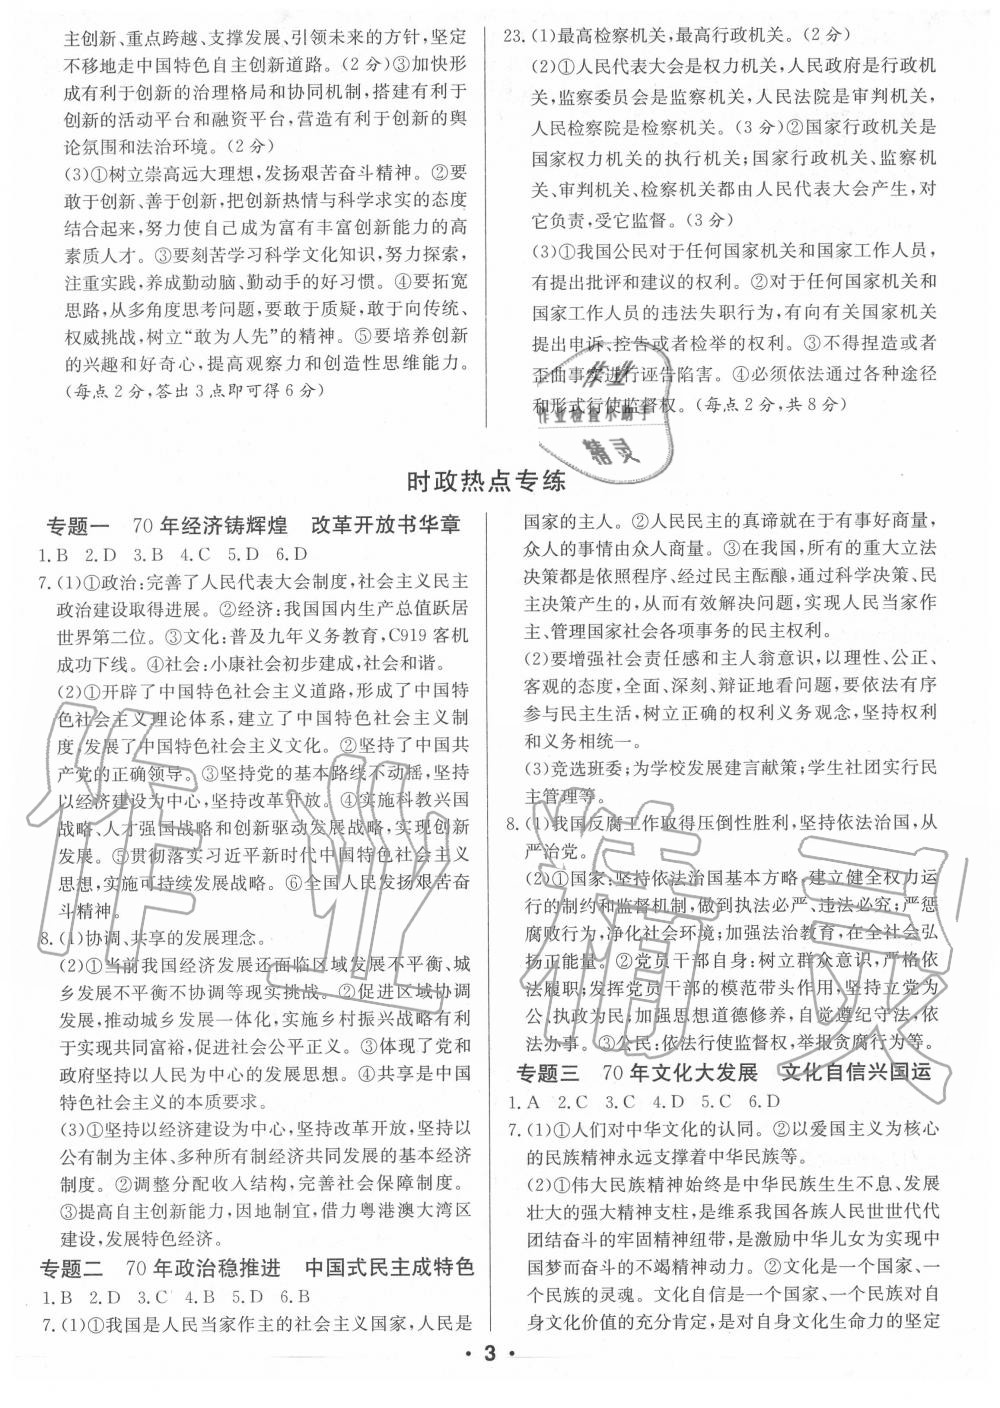 主创新、重点跨越、支撑发展、引领未来的方针，坚定
不移地走中国特色自主创新道路。(2分)③加快形
成有利于创新的治理格局和协同机制，搭建有利于
创新的活动平台和融资平台，营造有利于创新的舆
论氛围和法治环境。(2分)
(3)①树立崇高远大理想，发扬艰苦奋斗精神。②要
敢于创新、善于创新，把创新热情与科学求实的态度
结合起来，努力使自己成为富有丰富创新能力的高
素质人才。③要刻苦学习科学文化知识，努力探索，
注重实践，养成勤动脑、勤动手的好习惯。④要拓宽
思路，从多角度思考问题，要敢于质疑，敢于向传统、
权威挑战，树立“敢为人先”的精神。⑤要培养创新
的兴趣和好奇心，提高观察力和创造性思维能力。
(每点2分，答出3点即可得6分)
23.(1)最高检察机关，最高行政机关。(2分)
(2)①人民代表大会是权力机关，人民政府是行政机
关，监察委员会是监察机关，人民法院是审判机关，
人民检察院是检察机关。(3分)②国家行政机关是
国家权力机关的执行机关；国家行政机关、监察机
关、审判机关、检察机关都由人民代表大会产生，对
它负责，受它监督。(3分)
(3)①我国公民对于任何国家机关和国家工作人员，
有提出批评和建议的权利。②对于任何国家机关和
国家工作人员的违法失职行为，有向有关国家机关
提出申诉、控告或者检举的权利。③不得捏造或者
歪曲事实进行诬告陷害。④必须依法通过各种途径
和形式行使监督权。(每点2分，共8分)
作业
作业检查小助手
精灵
时政热点专练
专题一 70年经济铸辉煌 改革开放书华章
1.B 2.D 3.B 4.C 5.D 6.D
7.(1)①政治：完善了人民代表大会制度，社会主义民主
政治建设取得进展。②经济：我国国内生产总值跃居
世界第二位。③文化：普及九年义务教育，C919客机
成功下线。④社会：小康社会初步建成，社会和谐。
(2)①开辟了中国特色社会主义道路，形成了中国特
色社会主义理论体系，建立了中国特色社会主义制
度，发展了中国特色社会主义文化。②坚持了中国共
产党的正确领导。③坚持党的基本路线不动摇，坚持
以经济建设为中心，坚持改革开放。④实施科教兴国
战略、人才强国战略和创新驱动发展战略，实现创新
发展。⑤贯彻落实习近平新时代中国特色社会主义
思想，实施可持续发展战略。⑥全国人民发扬艰苦奋
斗精神。
8.(1)协调、共享的发展理念。
(2)①当前我国经济发展还面临区域发展不平衡、城
乡发展不平衡不协调等现实挑战。②促进区域协调
发展，推动城乡发展一体化，实施乡村振兴战略有利
于实现共同富裕，促进社会公平正义。③体现了党和
政府坚持以人民为中心的发展思想。④共享是中国
特色社会主义的本质要求。
(3)①坚持以经济建设为中心，坚持改革开放，坚持以
公有制为主体、多种所有制经济共同发展的基本经济
制度。②调整分配收入结构，完善社会保障制度。
③提高自主创新能力，因地制宜，借力粤港澳大湾区
建设，发展特色经济。
专题二 70年政治稳推进 中国式民主成特色
1.B 2.D 3.C 4.B 5.D 6.B
7.(1)①我国是人民当家作主的社会主义国家，人民是
国家的主人。②人民民主的真谛就在于有事好商量，
众人的事情由众人商量。③在我国，所有的重大立法
决策都是依照程序、经过民主酝酿，通过科学决策、民
主决策产生的，从而有效解决问题，实现人民当家作
主、管理国家社会各项事务的民主权利。
(2)要增强社会责任感和主人翁意识，以理性、公正、
客观的态度，全面、深刻、辩证地看问题，要依法有序
参与民主生活，树立正确的权利义务观念，坚持权利
和义务相统一。
(3)竞选班委；为学校发展建言献策；学生社团实行民
主管理等。
8.(1)我国反腐工作取得压倒性胜利，坚持依法治国，从
严治党。
(2)①国家：坚持依法治国基本方略，建立健全权力运
行的制约和监督机制，做到执法必严、违法必究；严惩
腐败行为，净化社会环境；加强法治教育，在全社会弘
扬正能量。②党员干部自身：树立群众意识，严格依
法履职；发挥党员干部的模范带头作用，坚持立党为
公、执政为民，加强思想道德修养，自觉遵纪守法，依
法办事。③公民：依法行使监督权，举报贪腐行为等。
专题三 70年文化大发展 文化自信兴国运
1.A 2.C 3.C 4.D 5.C 6.D
7.(1)①人们对中华文化的认同。②以爱国主义为核心
的民族精神永远支撑着中华民族等。
(2)①伟大民族精神始终是中华民族生生不息、发展
壮大的强大精神支柱，是维系我国各族人民世世代代
团结奋斗的牢固精神纽带，是激励中华儿女为实现中
国梦而奋斗的不竭精神动力。②文化是一个国家、一
个民族的灵魂。文化自信是一个国家、一个民族对自
身文化价值的充分肯定，是对自身文化生命力的坚定
作业精灵
·3·